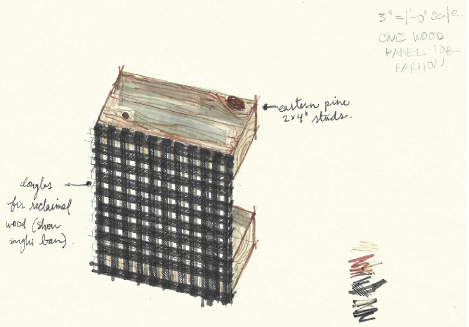 3"=1'-0" Scale.
CNC WOOD
PANEL FOR
eastern pine
2x4" studs.
douglas
fir reclaimed
wood (shou
sugi ban).